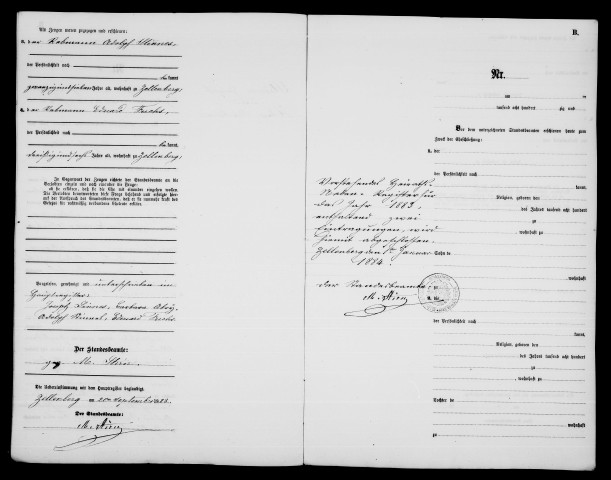 Als Zeugen waren zugezogen und erschienen:
der Rebmann Adolph
der Persönlichkeit nach
kannt,
Jahre alt, wohnhaft zu Zellenberg,
der Rebmann Eduard Fuchs,
der Persönlichkeit nach
kannt,
Jahre alt, wohnhaft zu Zellenberg.
In Gegenwart der Zeugen richtete der Standesbeamte an die
Verlobten einzeln und nach einander die Frage:
ob sie erklären, daß sie die Ehe mit einander eingehen wollen.
Die Verlobten beantworteten diese Frage bejahend und erfolgte hier-
auf der Ausspruch des Standesbeamten, daß er sie nunmehr kraft des
Gesetzes für rechtmäßig verbundene Eheleute erkläre.
Vorgelesen, genehmigt und unterschrieben im
Hauptregister:
Joseph
Adolph Eduard Fuchs
Der Standesbeamte:
gez. M.
Die Uebereinstimmung mit dem Hauptregister beglaubigt
Zellenberg, am 20ten September 1883.
Der Standesbeamte:
M.
B.
Nr.
am
tausend acht hundert zig und
Vor dem unterzeichneten Standesbeamten erschienen heute zum
Zweck der Eheschließung:
1. der
der Persönlichkeit nach
kannt,
Religion, geboren den
des Jahres tausend acht hundert
zu
, wohnhaft zu
Sohn de
wohnhaft
zu
2. die
der Persönlichkeit nach
kannt,
Religion, geboren den
des Jahres tausend acht hundert
zu
, wohnhaft zu
Tochter de
wohnhaft
zu
Vorstehendes Heirats-
Neben-Register für
das Jahr 1883,
enthaltend zwei
Eintragungen, wird
hiermit abgeschlossen.
Zellenberg den Januar
1884.
Der Standesbeamte:
M.